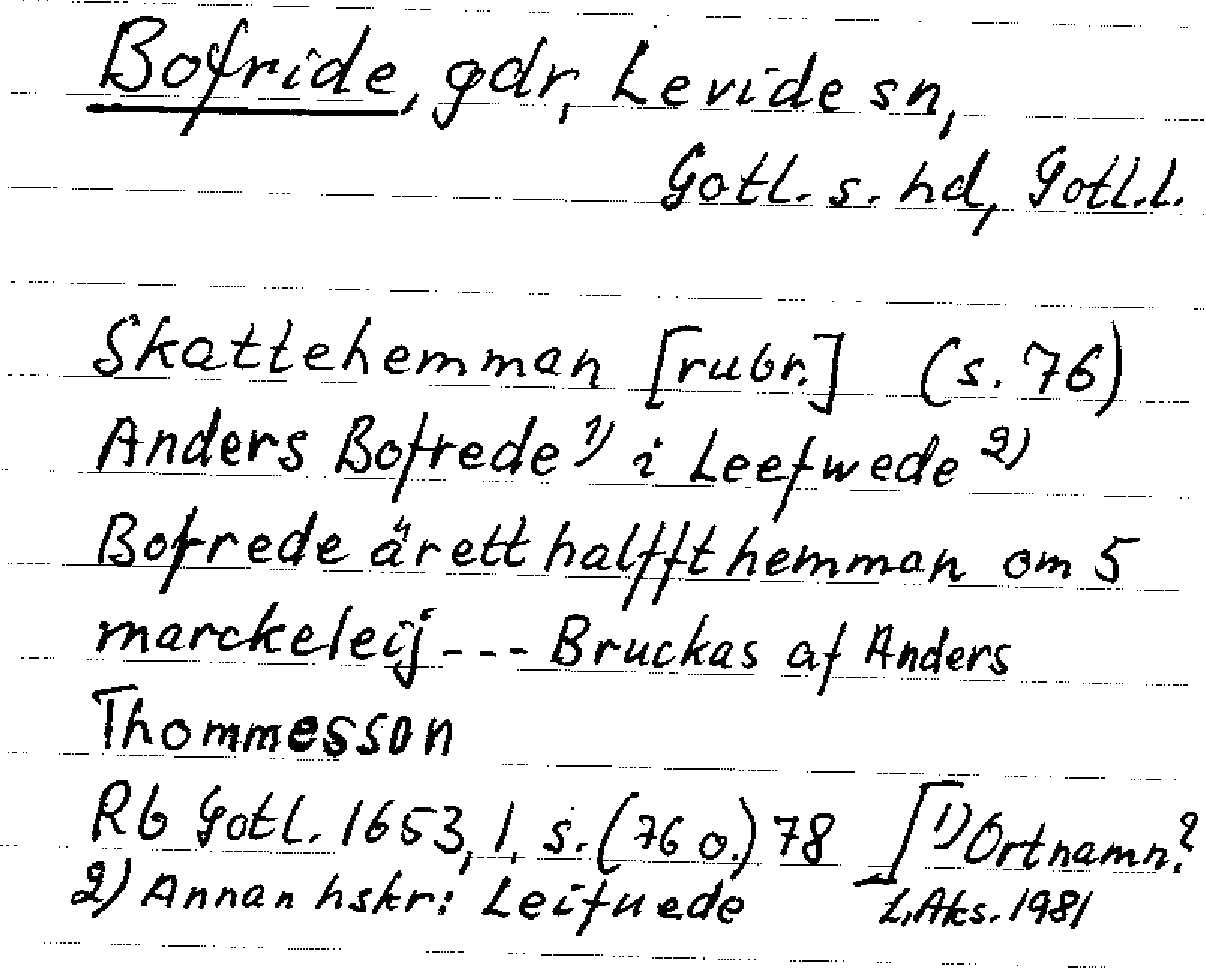 Bofride, gdr, Levide sn,
Gotl. s. hd, Gotl.l.
Skattehemman [rubr.] (s. 76)
Anders Bofrede 1) i Leefwede 2)
Bofrede är ett halfft hemman om 5
marckeleij --- Bruckas af Anders
Thommesson
Rb Gotl. 1653, 1, s. (76 o.) 78 [1) Ortnamn?
2) Annan hskr: Leifuede L, Aks. 1981